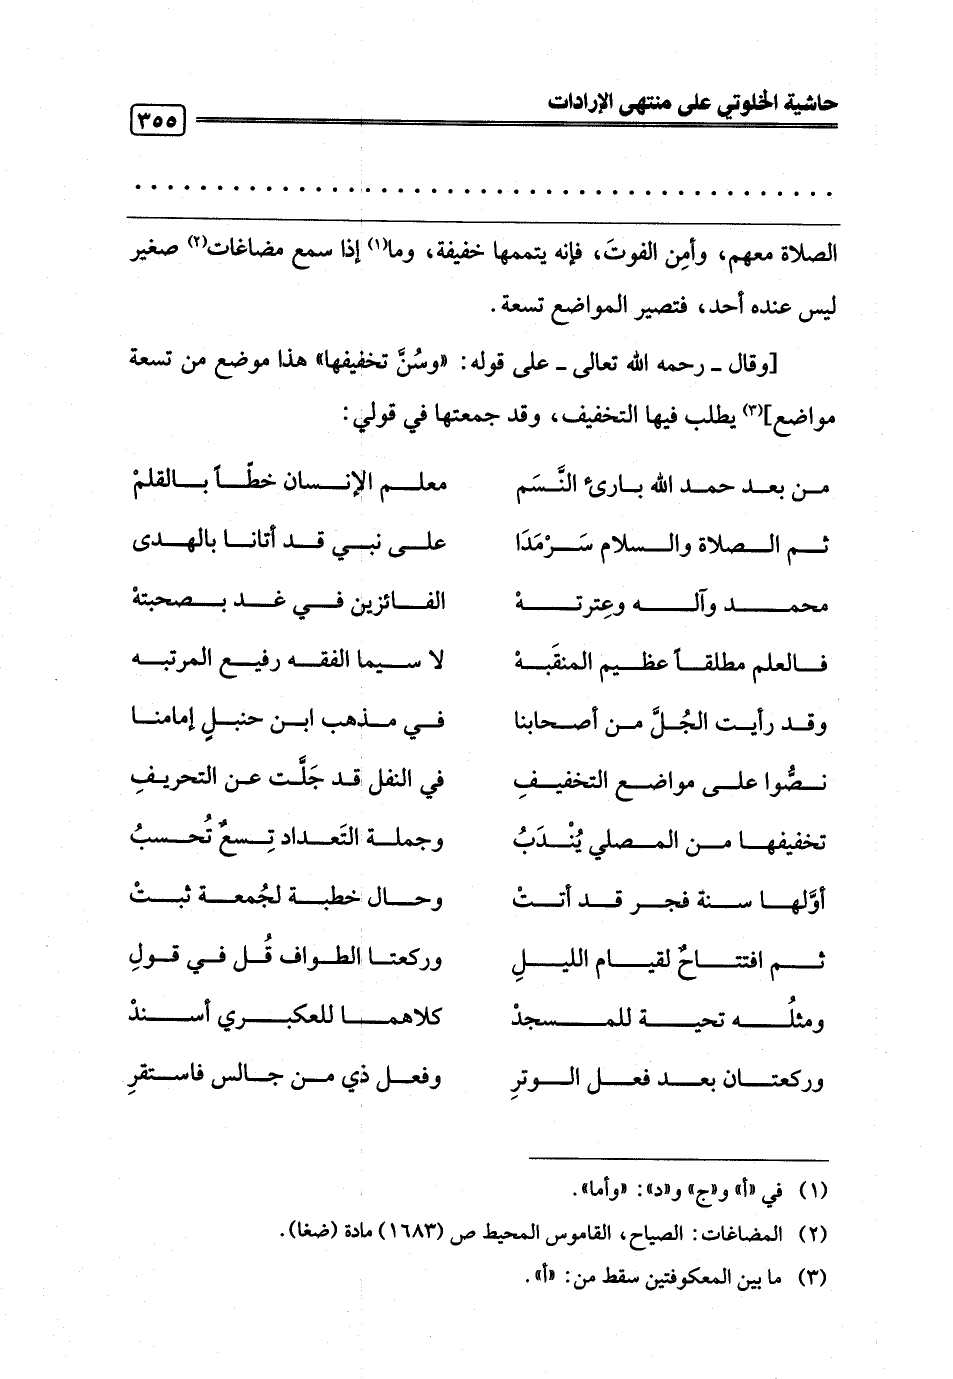 حاشية الخلوتي على منتهى الإرادات
٣٥٥
. . . . . . . . . . . . . . . . . . . . . . . . . . . . . . . . . . . . . . . . . . .
الصلاة معهم، وأمِن الفوتَ، فإنه يتممها خفيفة، وما(١) إذا سمع مضاغات(٢) صغير
ليس عنده أحد، فتصير المواضع تسعة.
[وقال ـ رحمه الله تعالى ـ على قوله: «وسُنَّ تخفيفها» هذا موضع من تسعة
مواضع](٣) يطلب فيها التخفيف، وقد جمعتها في قولي:
من بعد حمد الله بارئ النَّسَم معلم الإنسان خطّاً بالقلمْ
ثم الصلاة والسلام سَرْمَدَا على نبي قد أتانا بالهدى
محمد وآله وعِترتهْ الفائزين في غد بصحبتهْ
فالعلم مطلقاً عظيم المنقَبهْ لا سيما الفقه رفيع المرتبه
وقد رأيت الجُلَّ من أصحابنا في مذهب ابن حنبلٍ إمامنا
نصُّوا على مواضع التخفيفِ في النفل قد جَلَّت عن التحريفِ
تخفيفها من المصلي يُنْدَبُ وجملة التَعداد تِسعٌ تُحسبُ
أوَّلها سنة فجر قد أتتْ وحال خطبة لجُمعة ثبتْ
ثم افتتاحٌ لقيام الليلِ وركعتا الطواف قُل في قولِ
ومثلُه تحية للمسجدْ كلاهما للعكبري أسندْ
وركعتان بعد فعل الوترِ وفعل ذي من جالس فاستقرِ
(١) في «أ» و«ج» و«د»: «وأما».
(٢) المضاغات: الصياح، القاموس المحيط ص (١٦٨٣) مادة (ضغا).
(٣) ما بين المعكوفتين سقط من: «أ».